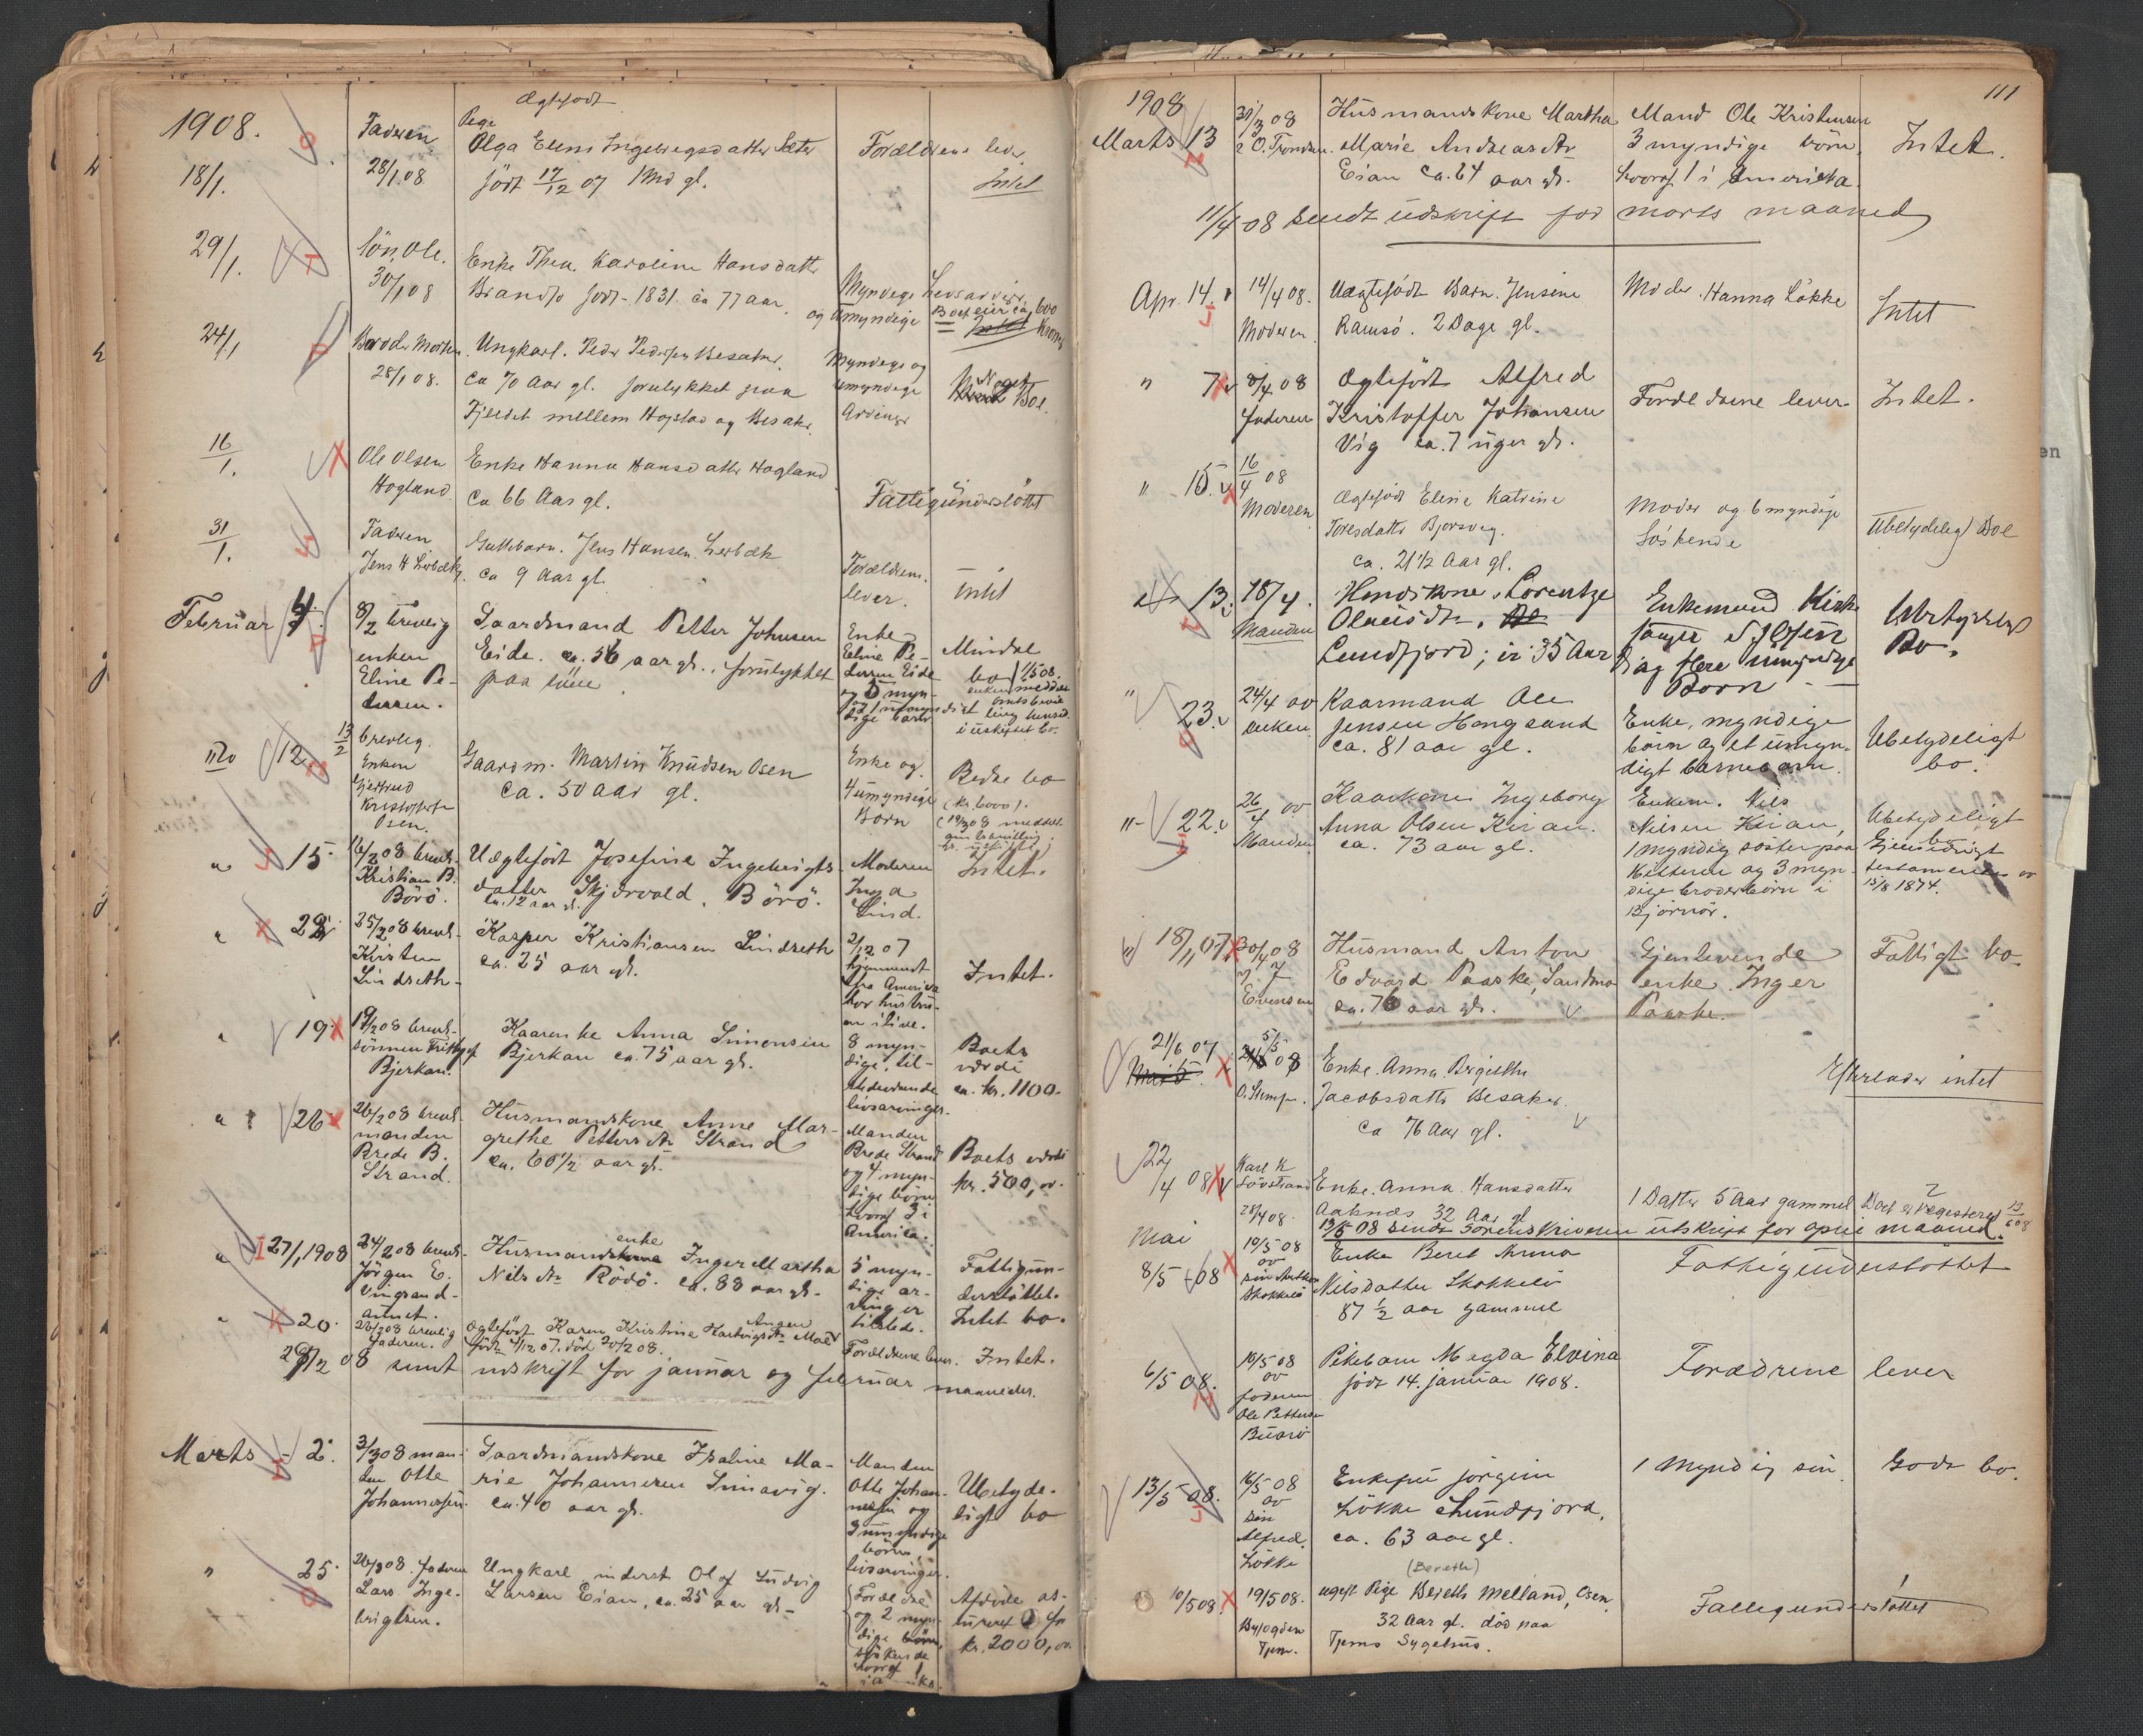 1908.
Ægtefødt
18/1.
Faderen
28/1 08
Pige
Olga Elens Ingebregsdatter Sæter
født 17/12 07 1 Md gl.
Forældrene lever
Intet
29/1.
Søn, Ole.
30/1 08
Enke Thea Karoline Hansdatter
Brandsø født 1831. ca 77 aar.
Myndige Livsarvinger
og Umyndige
Boet eier ca 600
Kroner
24/1
Broder Morten
28/1 08.
Ungkarl. Peder Pedersen Besaker
ca 70 Aar gl. forulykket paa
Fjeldet mellem Hopstad og Besaker.
Myndige og
umyndige
Arvinger
Noget
Boe.
16/1.
Ole Olsen
Hogland
Enke Hanna Hansdatter Hogland
Ca 66 Aar gl.
Fattigunderstøttet
31/1.
Faderen
Jens H Lerbæk
Guttebarn. Jens Hansen Lerbæk
ca 9 Aar gl.
Forældrene
lever.
intet
Februar 4.
8/2 brevlig
enken
Eline Pe-
dersen.
Gaardmand Petter Johnsen
Eide. ca. 56 aar gl., forulykket
paa
Enke
Eline Pe-
dersen Eide
og 5 myn-
dige børn
Mindre
bo
12
13/2
brevleg.
Enken
Gjertrud
Kristoffersen
Osen.
Gaardm. Martin Knudsen Osen
ca. 50 aar gl.
Enke og
4 umyndige
Børn
Bedre bo
(kr. 6000).
" 15.
16/2 08 brevl.
Kristian B.
Børø.
Uægtefødt Josefine Ingebrigts-
datter Skjærvold, Børø.
ca. 12 aar gl.
Moderen
Inga
Lind.
Intet.
" 22.
25/2 08 brevl.
Kirsten
Lindseth
Kasper Kristiansen Lindseth
ca. 25 aar gl.
2/12 07
hjemvendt
fra Amerika
Intet.
" 19
19/2 08 brevl.
sønnen Fritjof
Bjerkan.
Kaarenke Anna Simonsen
Bjerkan ca. 75 aar gl.
8 myn-
dige, til-
stedeværende
livsarvinger.
Boets
værdi
ca. kr. 1100.
" 26
26/2 08 brevl.
manden
Brede B.
Strand.
Husmandskone Anne Mar-
grethe Pettersdtr Strand
ca. 60 1/2 aar gl.
Manden
Brede Strand
og 4 myn-
dige børn
hvoraf 3 i
Amerika.
Boets værdi
kr. 500,00.
" 27/1 1908
24/2 08 brevl.
Jørgen E.
Vingsand
Husmandsenke Inger Martha
Nilsdtr Rødø. ca. 88 aar gl.
5 myn-
dige ar-
vinger
tilstede.
Fattigun-
derstøttet.
Intet bo.
" 20.
26/2 08 brevlig
faderen.
Ægtefødt Karen Kristine Hartvigsdtr
født 4/12 07, død 20/2 08.
Forældrene lever.
Intet.
29/2 08 sendt udskrift for januar og februar maaneder.
Marts 2.
3/3 08 man-
den Otte
Johannessen.
Gaardmandskone Isaline Ma-
rie Johannesen Simavig.
ca. 40 aar gl.
Manden
Otte Johan-
nessen og
3 umyndige
børn,
livsarvinger.
Ubetyde-
ligt bo
" 25.
26/3 08. faderen
Lars Inge-
brigtsen.
Ungkarl inderst Olaf Ludvig
Larsen Eian, ca. 25 aar gl.
Forældre
og 2 myn-
dige
søskende
hvoraf 1
Afdøde as-
sureret for
kr. 2000,00.
111
1908
Marts 13
31/3 08
O. Trondsen.
Husmandskone Martha
Marie Andreasdtr
Eian ca. 64 aar gl.
Mand Ole Kristensen
3 myndige børn,
hvoraf 1 i Amerika.
Intet.
11/4 08 sendt udskrift for marts maaned
Apr. 14.
14/4 08.
Moderen.
Uægtefødt Barn. Jensine
Ramsø. 2 Dage gl.
Moder. Hanna Løkke
Intet
" 7
8/4 08
faderen
Ægtefødt Alfred
Kristoffer Johansen
Vig ca. 7 uger gl.
Forældrene lever
Intet.
" 15.
16/4 08
Moderen
Ægtefødt Eline Katrine
Toresdatter Bjørsvig.
ca. 21 1/2 Aar gl.
Moder og 6 myndige
Søskende
Ubetydeleg Boe
13.
18/4.
Manden
Lorentze
Lundfjord; ca 35 Aar
Enkemand Kirke
sanger
og flere umyndige
Børn
Ubetydelig
Bo.
" 23.
24/4 av
enken
Kaarmand Ole
Jensen Hongsand
ca. 81 aar gl.
Enke, myndige
børn og et umyn-
digt barnebarn.
Ubetydeligt
bo.
" 22.
26/4 av
Manden
Kaarkone Ingeborg
Anna Olsen Kiran.
ca. 73 aar gl.
Enkem. Nils
Nilsen Kiran,
1 myndig søster paa
Hitteren og 3 myn-
dige broderbørn i
Bjørnør.
Ubetydeligt
bo
Gjensidigt
testamente av
15/8 1874.
" 18/11 07
30/4 08
Evensen
Husmand Anton
Edvard Paaske, Sandmo
ca. 76 aar gl.
Gjenlevende
enke Inger
Paaske.
Fattigt bo.
21/6 07
5/5 08
O. Stempe.
Enke. Anna Birgitthe
Jacobsdatter Besaker.
ca 76 Aar gl.
Efterlader intet
22/4 08
Karl K
Løvstrand
28/4 08.
Enke. Anna Hansdatter
Aaknæs 32 Aar gl
1 Datter 5 Aar gammel
Boet er registeret 13/6 08
13/5 08 sendt Sorenskriveren utskrift for april maaned.
Mai
8/5 08
10/5 08
av
Enke Beret Anna
Nilsdatter Skokkelø
87 1/2 aar gammel
Fattigunderstøttet
6/5 08.
10/5 08
av
faderen
Ole Pettersen
Buarø
Pikebarn Magda Elvina
født 14. januar 1908.
Forældrene lever
13/5 08.
16/5 08
av
søn
Alfred
Løkke
Enkefru Jørgine
Løkke Lundfjord,
ca. 63 aar gl.
1 Myndig søn.
Godt bo.
10/5 08
19/5 08.
Byfogden
Tjem.
(Bereth)
ugift Pige Bereth Melland, Osen.
32 Aar gl. død paa
Tjems Sygehus.
Fattigunderstøttet